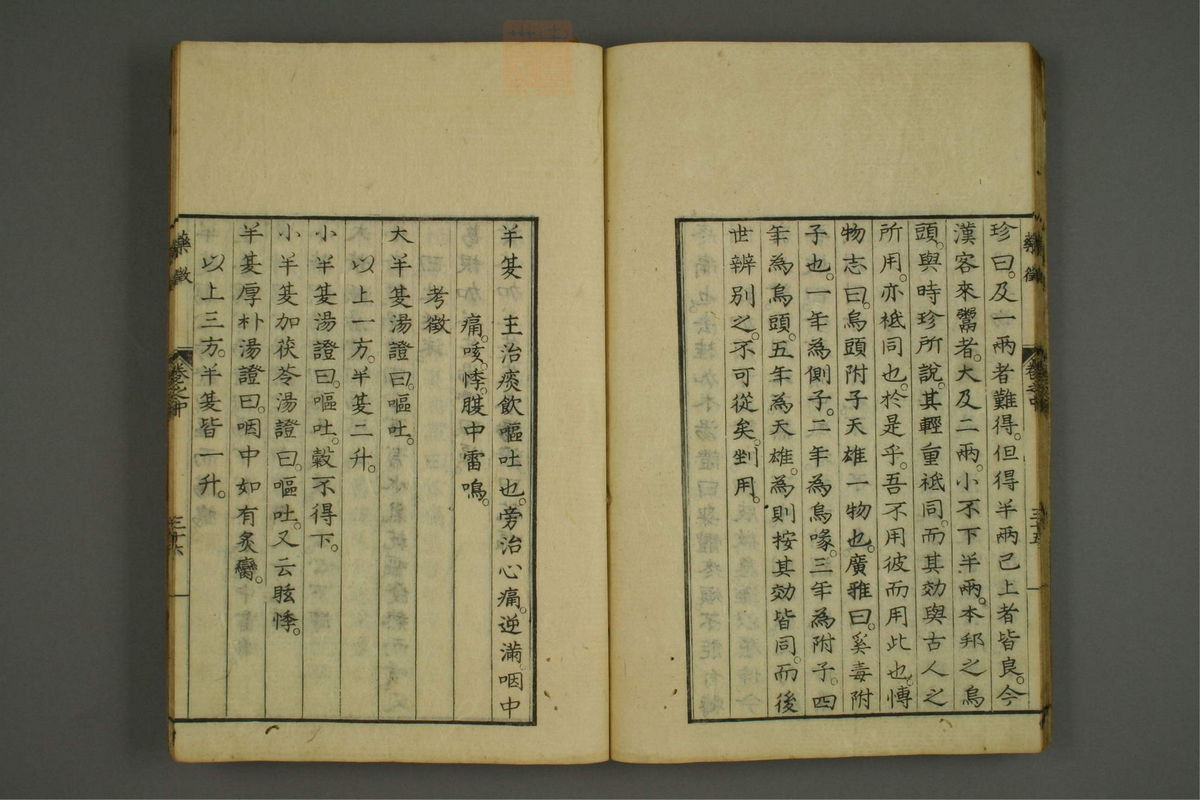 珍曰。及一兩者難得。但得半兩已上者皆良。今
漢客來鬻者。大及二兩。小不下半兩。本邦之烏
頭。與時珍所說。其輕重祗同。而其効與古人之
所用。亦祗同也。於是乎。吾不用彼而用此也。博
物志曰。烏頭附子天雄一物也。廣雅曰。奚毒附
子也。一年為側子。二年為烏喙。三年為附子。四
年為烏頭。五年為天雄。為則按其効皆同。而後
世辨別之。不可從矣。剉用。
藥徵
卷之中
三十五
半夏 主治痰飲嘔吐也。旁治心痛。逆滿。咽中
痛。咳。悸。腹中雷鳴。
考徵
大半夏湯證曰。嘔吐。
以上一方。半夏二升。
小半夏湯證曰。嘔吐。穀不得下。
小半夏加茯苓湯證曰。嘔吐。又云眩悸。
半夏厚朴湯證曰。咽中如有炙臠。
以上三方。半夏皆一升。
藥徵
卷之中
三十六